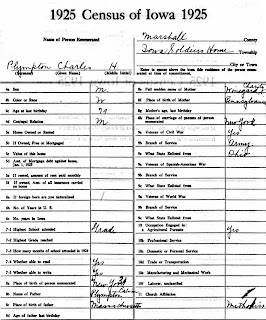 1925 Census of Iowa 1925
Name of Person Enumerated
Marshall
County
Iowa Soldiers Home
Township
City or Town
Plympton Charles H
(Surname) (Given Name) (Middle Initial)
Enter in spaces above the true residence of the person enumerated at time of commencement.
4a Sex M
4b Color or Race W
4c Age at last birthday 79
4d Conjugal Relation M
5a Home Owned or Rented
5b If Owned, Free or Mortgaged
5c Value of this house
5d Amt. of Mortgage debt against house, Jan. 1, 1925
5e If rented, amount of rent paid monthly
5f If owned, Amt. of all insurance carried on house
6a If foreign born are you naturalized
6b No. of Years in U. S.
6c No. years in Iowa
7-1 Highest School attended Grade
7-2 Highest Grade reached
7-3 How many months of school attended in 1924
7-4 Whether able to read Yes
7-5 Whether able to write Yes
8a Place of birth of person enumerated New York
8b Name of Father Plympton Calvin
8c Place of birth of father Massachusetts
8d Age of father last birthday
8e Full maiden name of Mother
8f Place of birth of Mother Pennsylvania
8g Mother's age, last birthday
8h Place of marriage of parents of person enumerated New York
9a Veteran of Civil War Yes
9b Branch of Service Army
9c What State Enlisted from Ohio
9a Veteran of Spanish-American War
9b Branch of Service
9c What State Enlisted from
9a Veteran of World War
9b Branch of Service
9c What State Enlisted from
Occupation Engaged in
Agricultural Pursuits Yes
10b Professional Service
10c Domestic or Personal Service
10d Trade or Transportation
10e Manufacturing and Mechanical Work
10f Laborer, unclassified
11 Church Affiliation Methodist